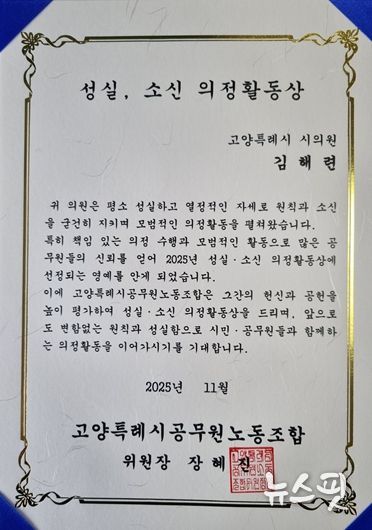 성실, 소신 의정활동상
고양특례시 시의원
김 해 련
귀 의원은 평소 성실하고 열정적인 자세로 원칙과 소신
을 굳건히 지키며 모범적인 의정활동을 펼쳐왔습니다.
특히 책임 있는 의정 수행과 모범적인 활동으로 많은 공
무원들의 신뢰를 얻어 2025년 성실·소신 의정활동상에
선정되는 영예를 안게 되었습니다.
이에 고양특례시공무원노동조합은 그간의 헌신과 공헌을
높이 평가하여 성실·소신 의정활동상을 드리며, 앞으로
도 변함없는 원칙과 성실함으로 시민·공무원들과 함께하
는 의정활동을 이어가시기를 기대합니다.
2025년 11월
고양특례시공무원노동조합
위원장 장 혜 진
뉴스픽